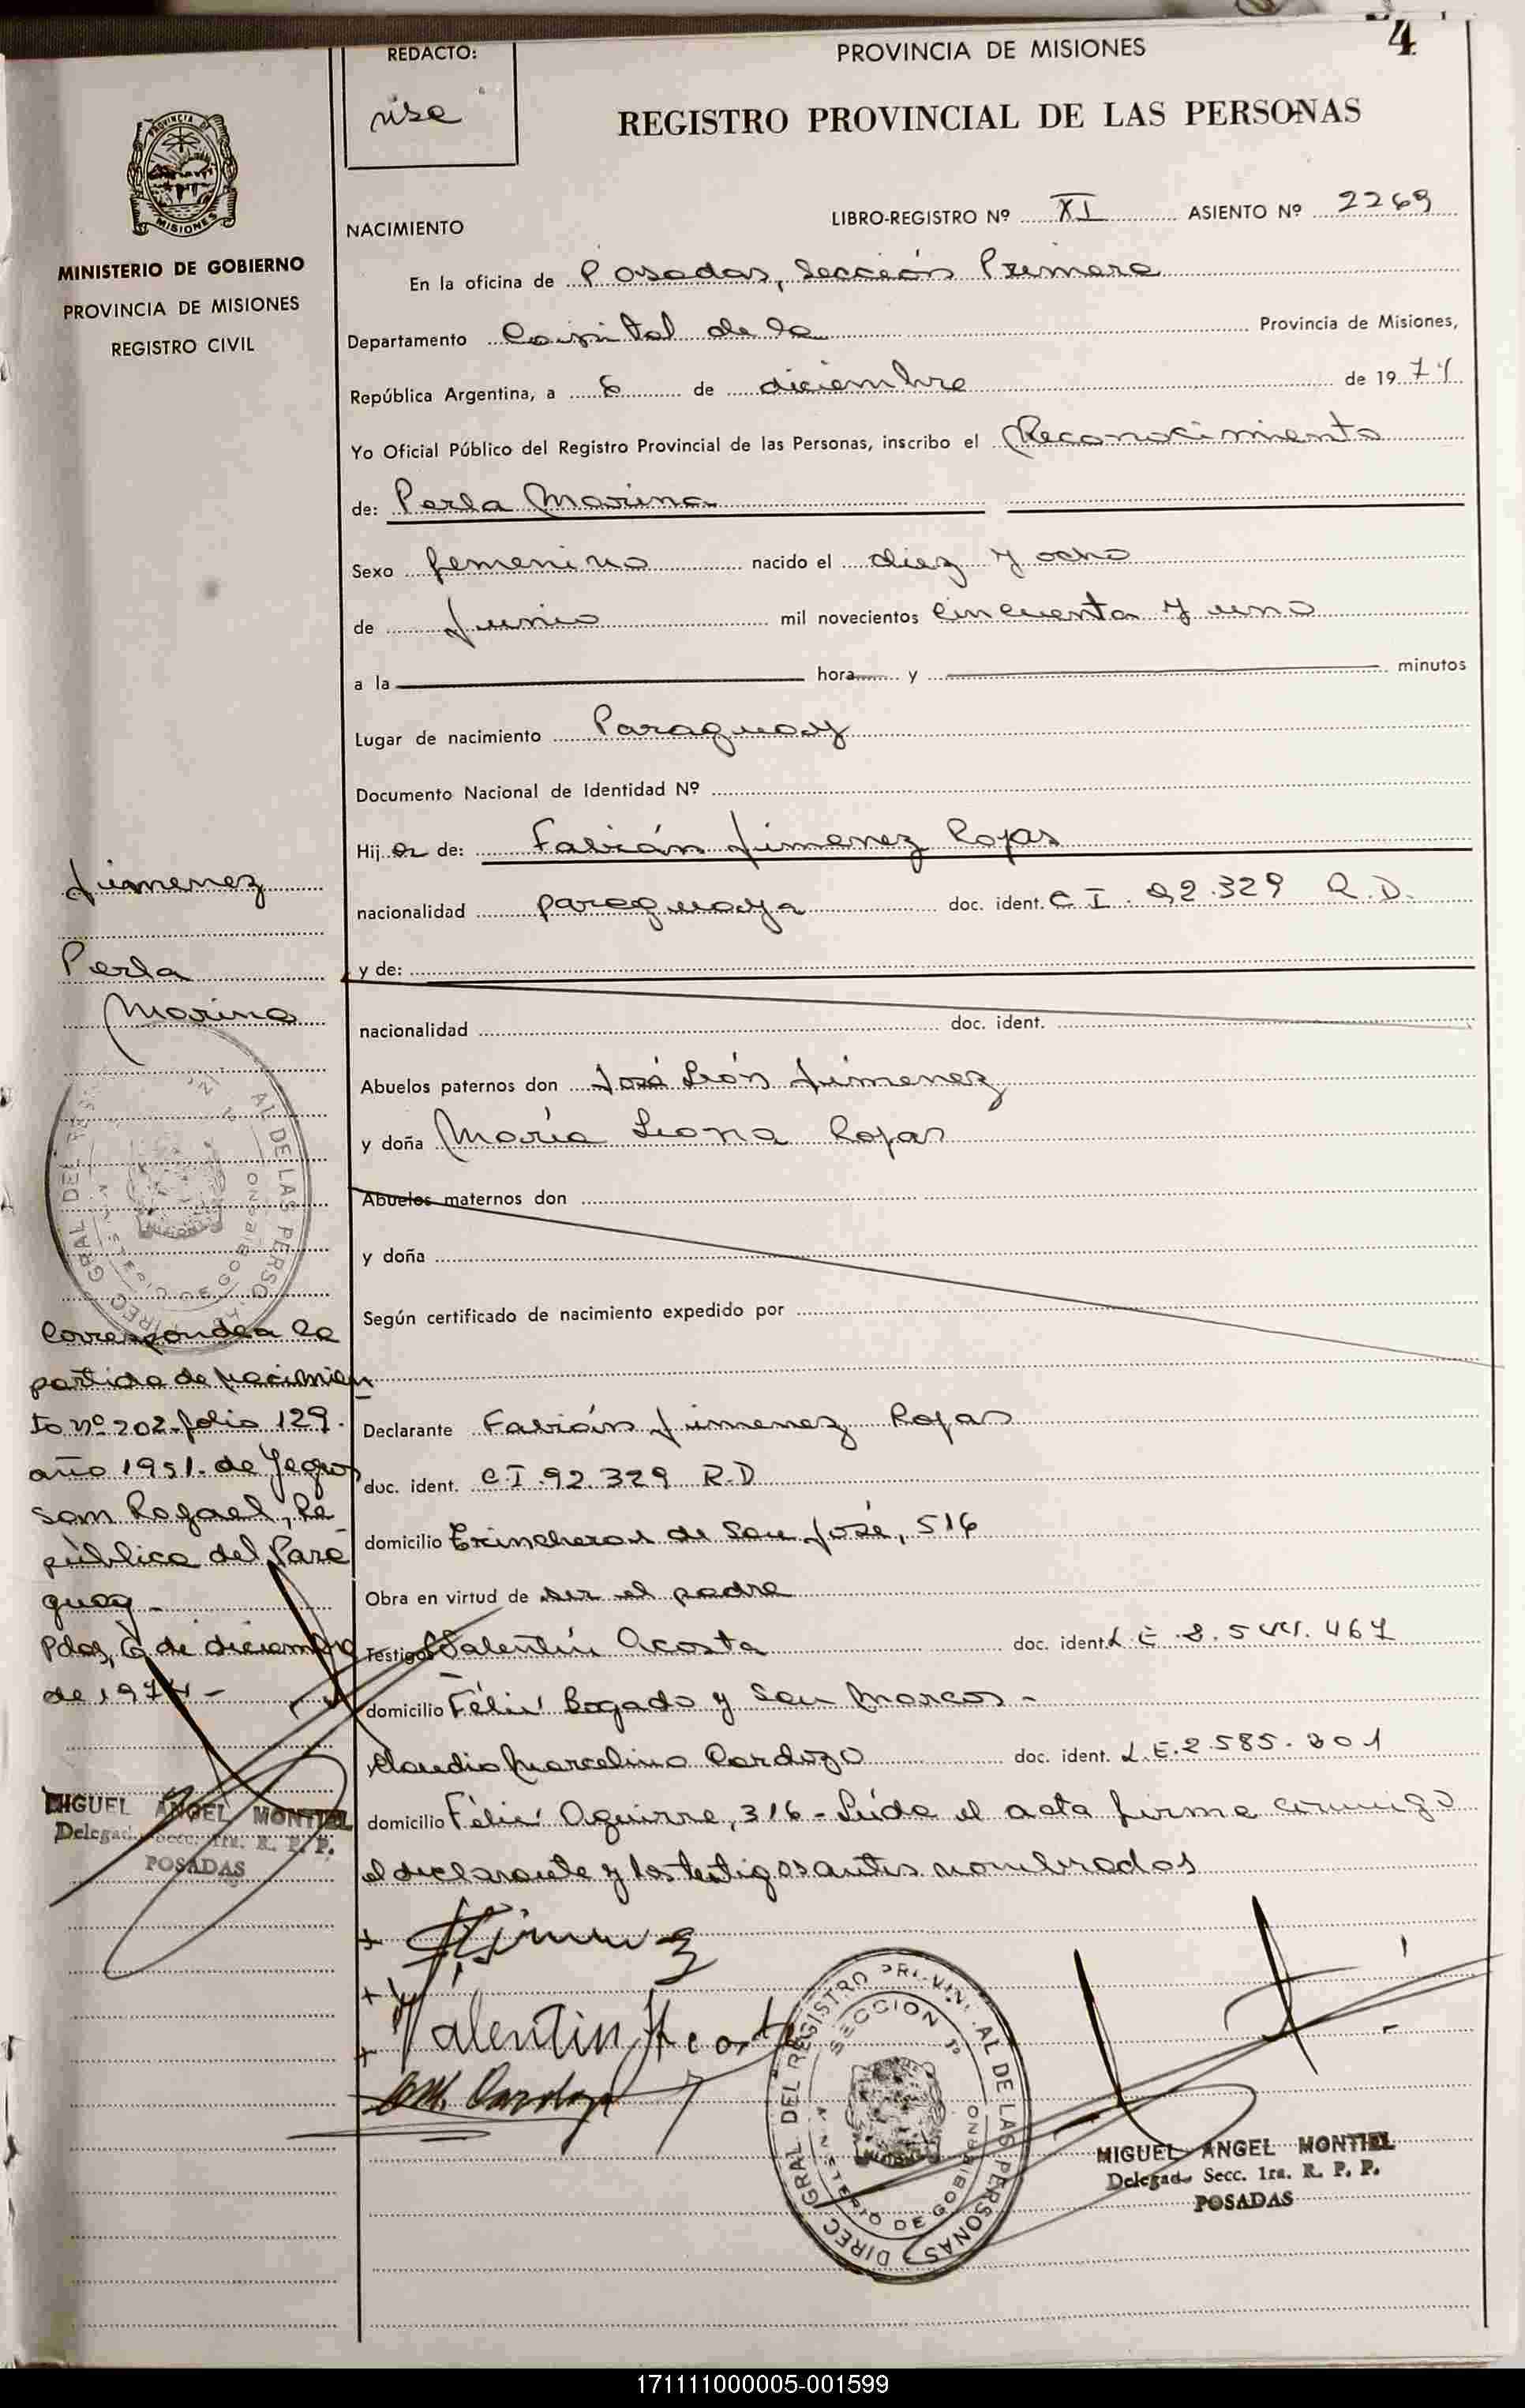 4
REDACTO:
PROVINCIA DE MISIONES
REGISTRO PROVINCIAL DE LAS PERSONAS
PROVINCIA DE
MISIONES
MINISTERIO DE GOBIERNO
PROVINCIA DE MISIONES
REGISTRO CIVIL
NACIMIENTO
LIBRO-REGISTRO Nº XI ASIENTO Nº 2269
En la oficina de Posadas, Sección Primera
Departamento Capital de la Provincia de Misiones,
República Argentina, a 6 de diciembre de 1974
Yo Oficial Público del Registro Provincial de las Personas, inscribo el Reconocimiento
de: Perla Marina
Sexo femenino nacido el diez y ocho
de Junio mil novecientos cincuenta y uno
a la hora y minutos
Lugar de nacimiento Paraguay
Documento Nacional de Identidad Nº
Hija de: Fabián Jimenez Rojas
nacionalidad paraguaya doc. ident. C I. 92.329 R.D.
y de:
nacionalidad doc. ident.
Abuelos paternos don José León Jimenez
y doña María Leona Rojas
Abuelos maternos don
y doña
Según certificado de nacimiento expedido por
Declarante Fabián Jimenez Rojas
doc. ident. C.I. 92.329 R.D
domicilio Trincheras de San José, 516
Obra en virtud de ser el padre
Testigos Valentín Acosta doc. ident. L.E 467
domicilio Félix Bogado y San Marcos -
Claudio Marcelino Cardozo doc. ident. L.E. 2.585.201
domicilio Félix Aguirre, 316 - Leída el acta firma conmigo
el declarante y los testigos antes nombrados
Jimenez
Perla
Marina
Corresponde a la
partida de nacimien
to nº 202 folio 129.
año 1951. de Yegros
San Rafael, Re
pública del Para
guay -
Pdas, 6 de diciembre
de 1974 -
MIGUEL ANGEL MONTIEL
Delegado Secc. 1ra. R. P. P.
POSADAS
Jimenez
Valentin Acosta
M. Cardozo
DIREC. GRAL. DEL REGISTRO PROVINCIAL DE LAS PERSONAS
SECCION 1º
MINISTERIO DE GOBIERNO
MIGUEL ANGEL MONTIEL
Delegado Secc. 1ra. R. P. P.
POSADAS
171111000005-001599